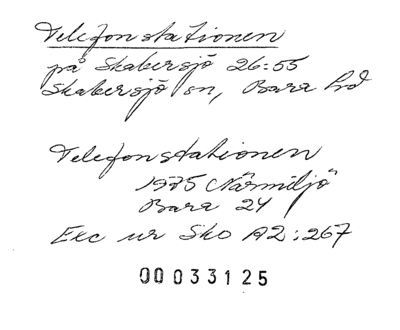 Telefonstationen
på Skabersjö 26:55
Skabersjö sn, Bara hd
Telefonstationen
1975 "Närmiljö"
Bara 24
Exc ur Sko A2:267
00033125